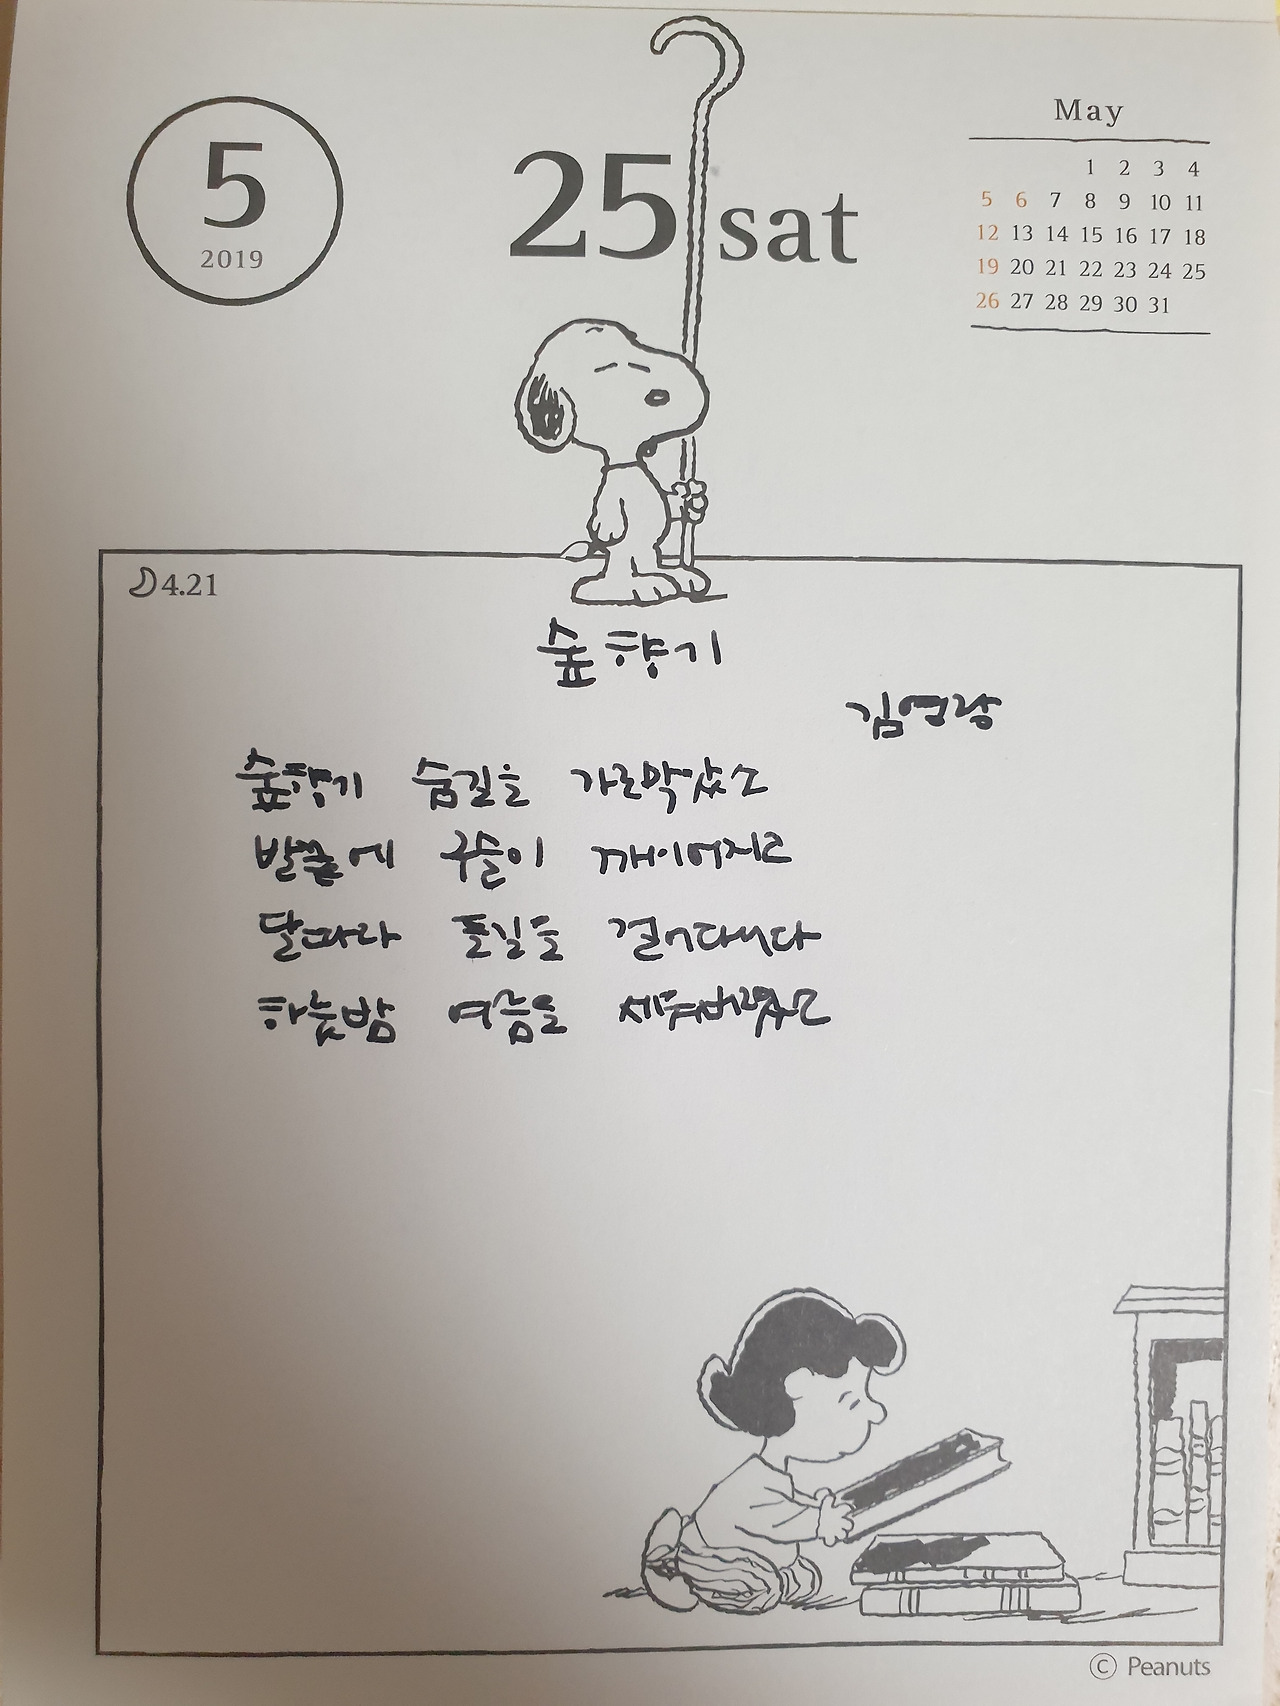 5
2019
25 sat
May
1 2 3 4
5 6 7 8 9 10 11
12 13 14 15 16 17 18
19 20 21 22 23 24 25
26 27 28 29 30 31
4.21
숲향기
김영랑
숲향기 숨길을 가로막았소
발끝에 구슬이 깨이어지고
달따라 들길을 걸어다니다
하룻밤 여름을 세워버렸소
© Peanuts